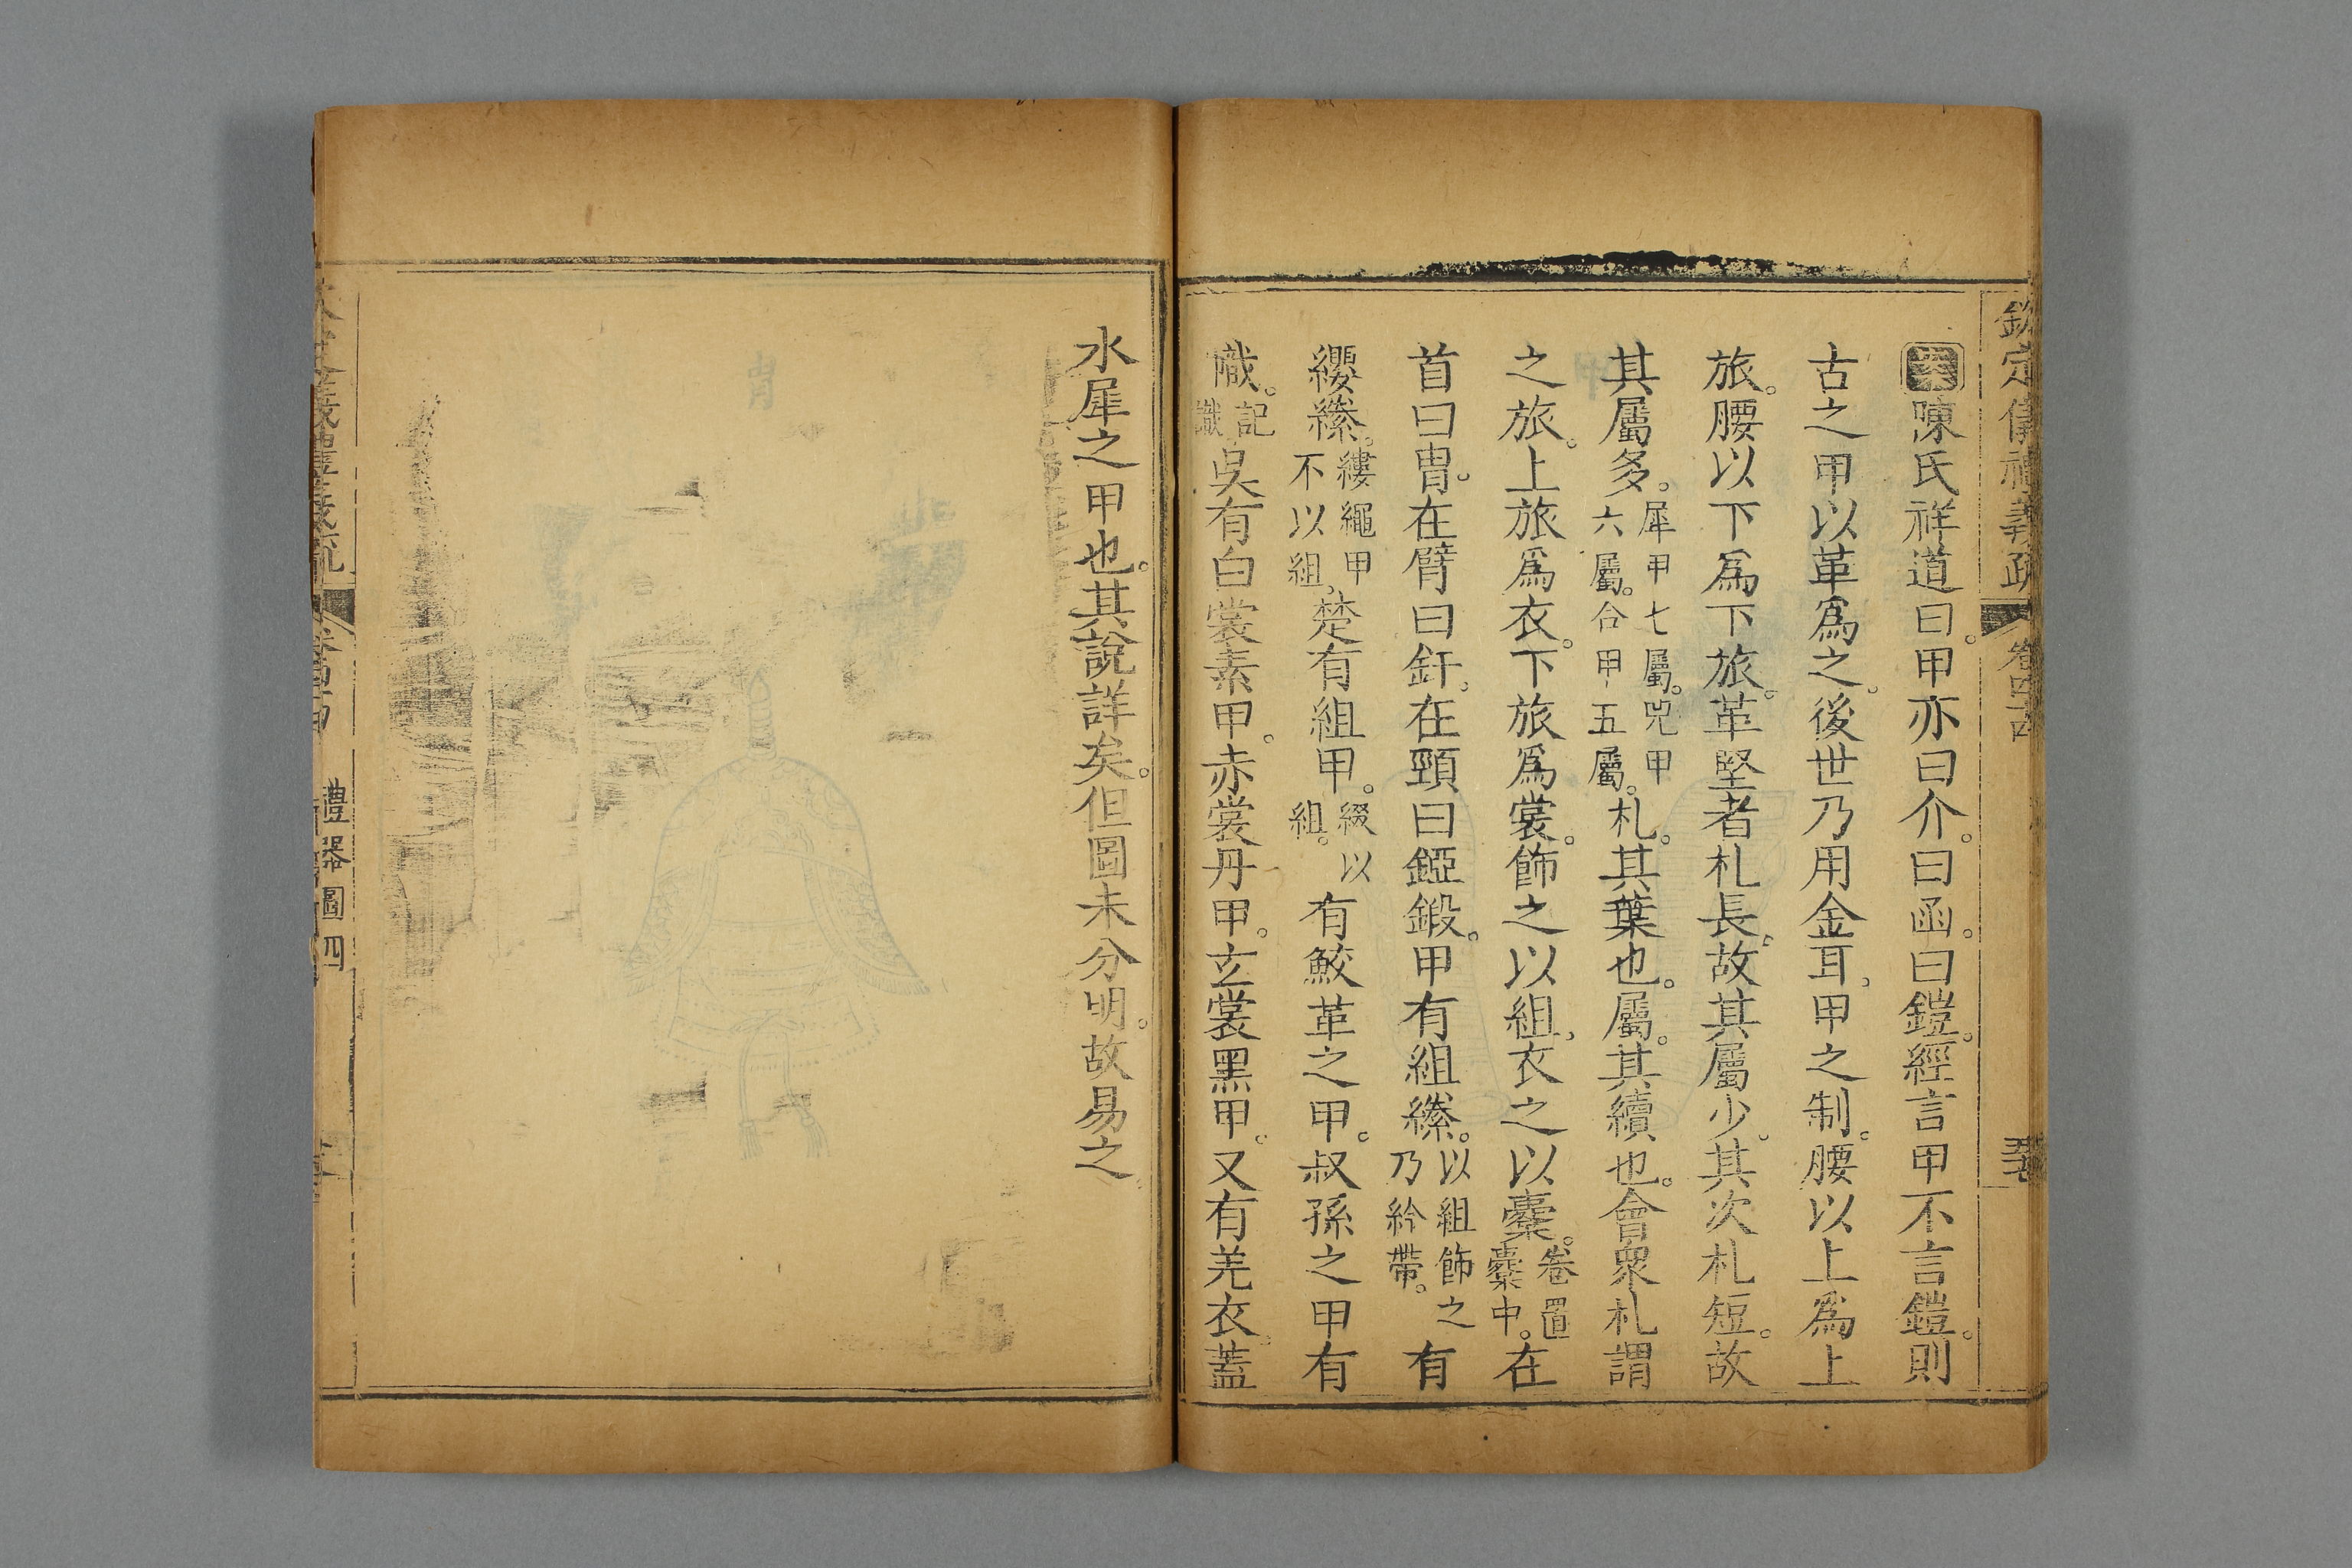 欽定儀禮義疏 卷四十四
陳氏祥道曰。甲亦曰介。曰函。曰鎧。經言甲不言鎧。則
古之甲以革爲之。後世乃用金耳。甲之制。腰以上爲上
旅。腰以下爲下旅。革堅者札長。故其屬少。其次札短。故
其屬多。犀甲七屬。兕甲六屬。合甲五屬。札。其葉也。屬。其續也。會衆札謂
之旅。上旅爲衣。下旅爲裳。飾之以組。衣之以櫜。卷置櫜中。在
首曰冑。在臂曰釬。在頸曰錏鍜。甲有組縧。以組飾之乃紟帶。有
纓縧。縷繩甲不以組。楚有組甲。綴以組。有鮫革之甲。叔孫之甲有
幟。記識吳有白裳素甲。赤裳丹甲。玄裳黑甲。又有羌衣。蓋
水犀之甲也。其說詳矣。但圖未分明。故易之
禮器圖四